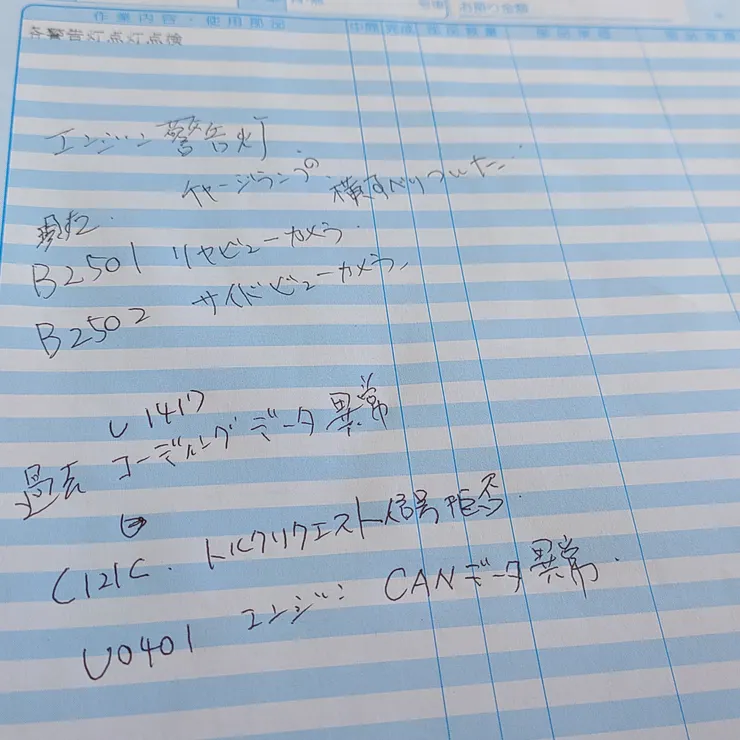 作業内容・使用部品
各警告灯点灯点検
エンジン警告灯
チャージランプの
横すべりついた
現在
B2501 リヤビューカメラ
B2502 サイドビューカメラ
U1417
過去 コーディングデータ異常
C121C. トルクリクエスト信号拒否.
U0401 エンジン CANデータ異常.